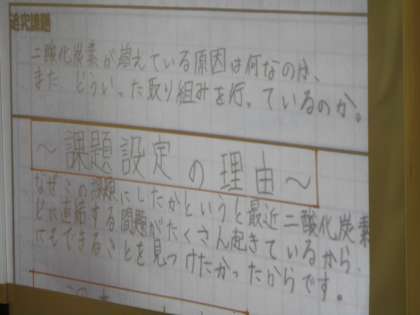 追究課題
二酸化炭素が増えている原因は何なのか、
また どういった取り組みを行っているのか。
〜課題設定の理由〜
なぜこの課題にしたかというと最近二酸化炭素
に直結する問題がたくさん起きているから、
にもできることを見つけたかったからです。